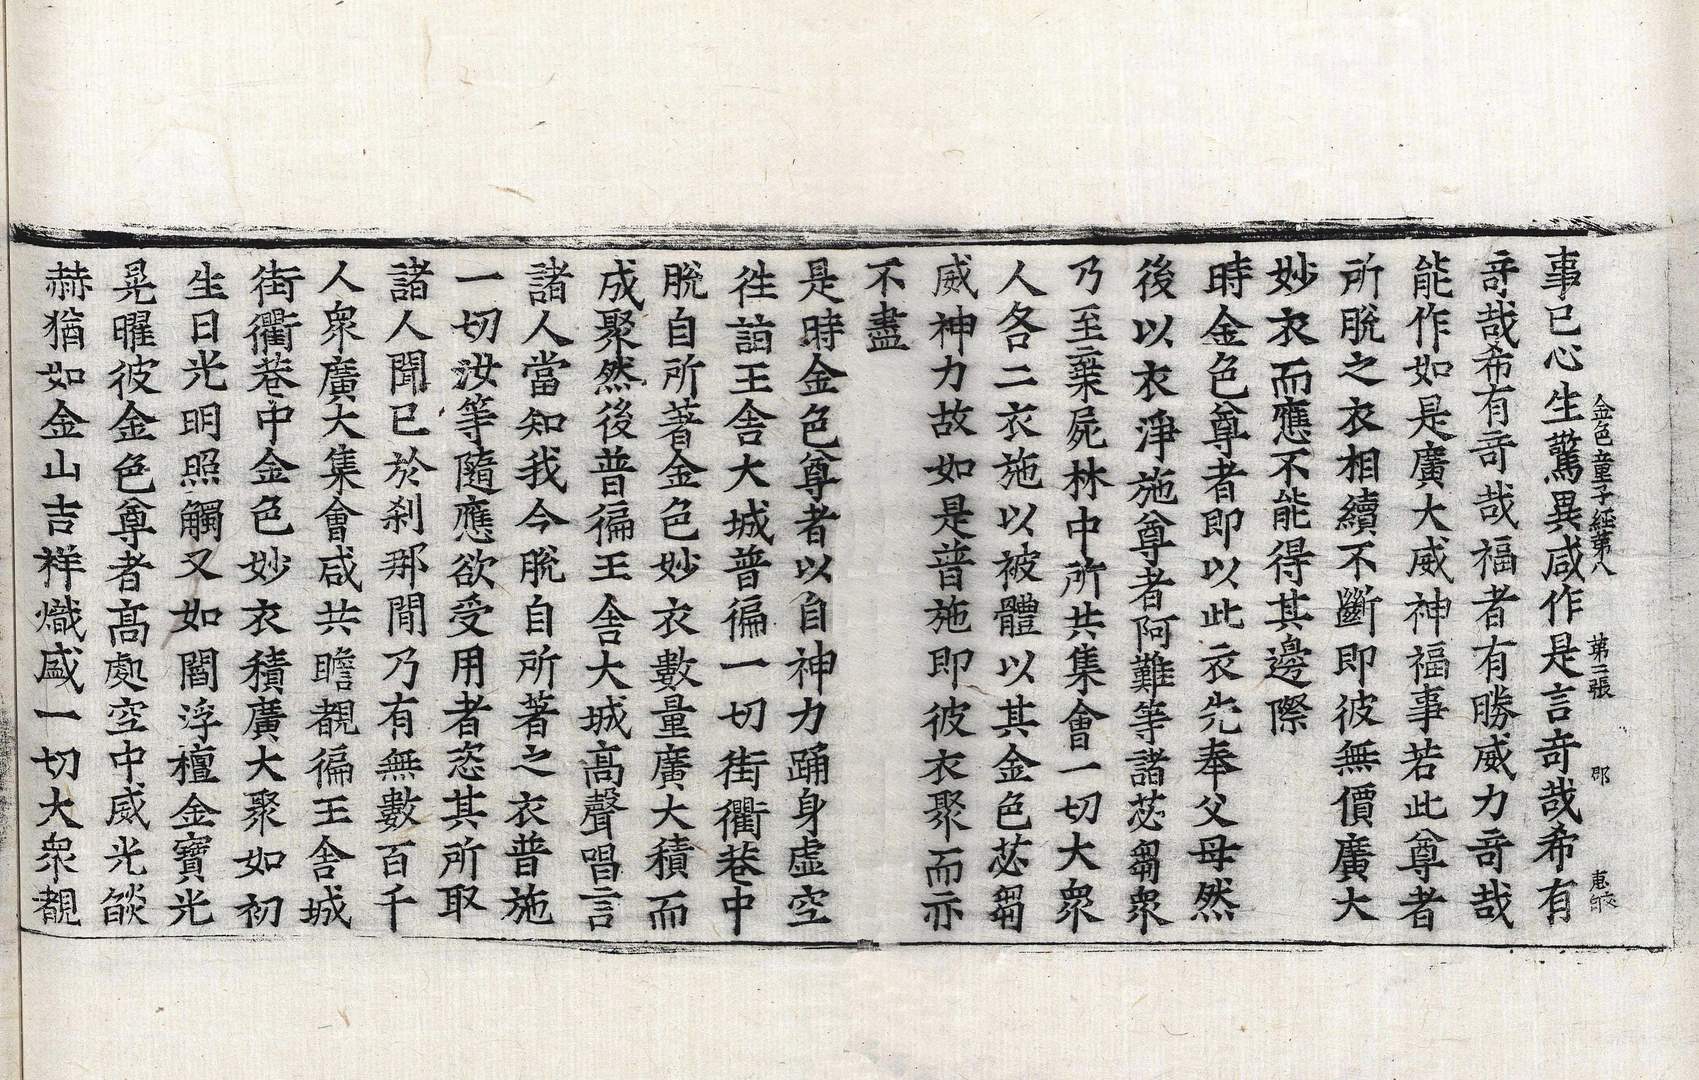 金色童子經第八　第三張　郡
事已心生驚異咸作是言竒哉希有
竒哉希有竒哉福者有勝威力竒哉
能作如是廣大威神福事若此尊者
所脫之衣相續不斷即彼無價廣大
妙衣而應不能得其邊際
時金色尊者即以此衣先奉父母然
後以衣淨施尊者阿難等諸苾芻衆
乃至棄屍林中所共集會一切大衆
人各二衣施以被體以其金色苾芻
威神力故如是普施即彼衣聚而亦
不盡
是時金色尊者以自神力踊身虛空
徃詣王舍大城普徧一切街衢巷中
脫自所著金色妙衣數量廣大積而
成聚然後普徧王舍大城高聲唱言
諸人當知我今脫自所著之衣普施
一切汝等隨應欲受用者恣其所取
諸人聞已於刹那間乃有無數百千
人衆廣大集會咸共瞻覩徧王舍城
街衢巷中金色妙衣積廣大聚如初
生日光明照觸又如閻浮檀金寶光
晃曜彼金色尊者高處空中威光燄
赫猶如金山吉祥熾盛一切大衆覩